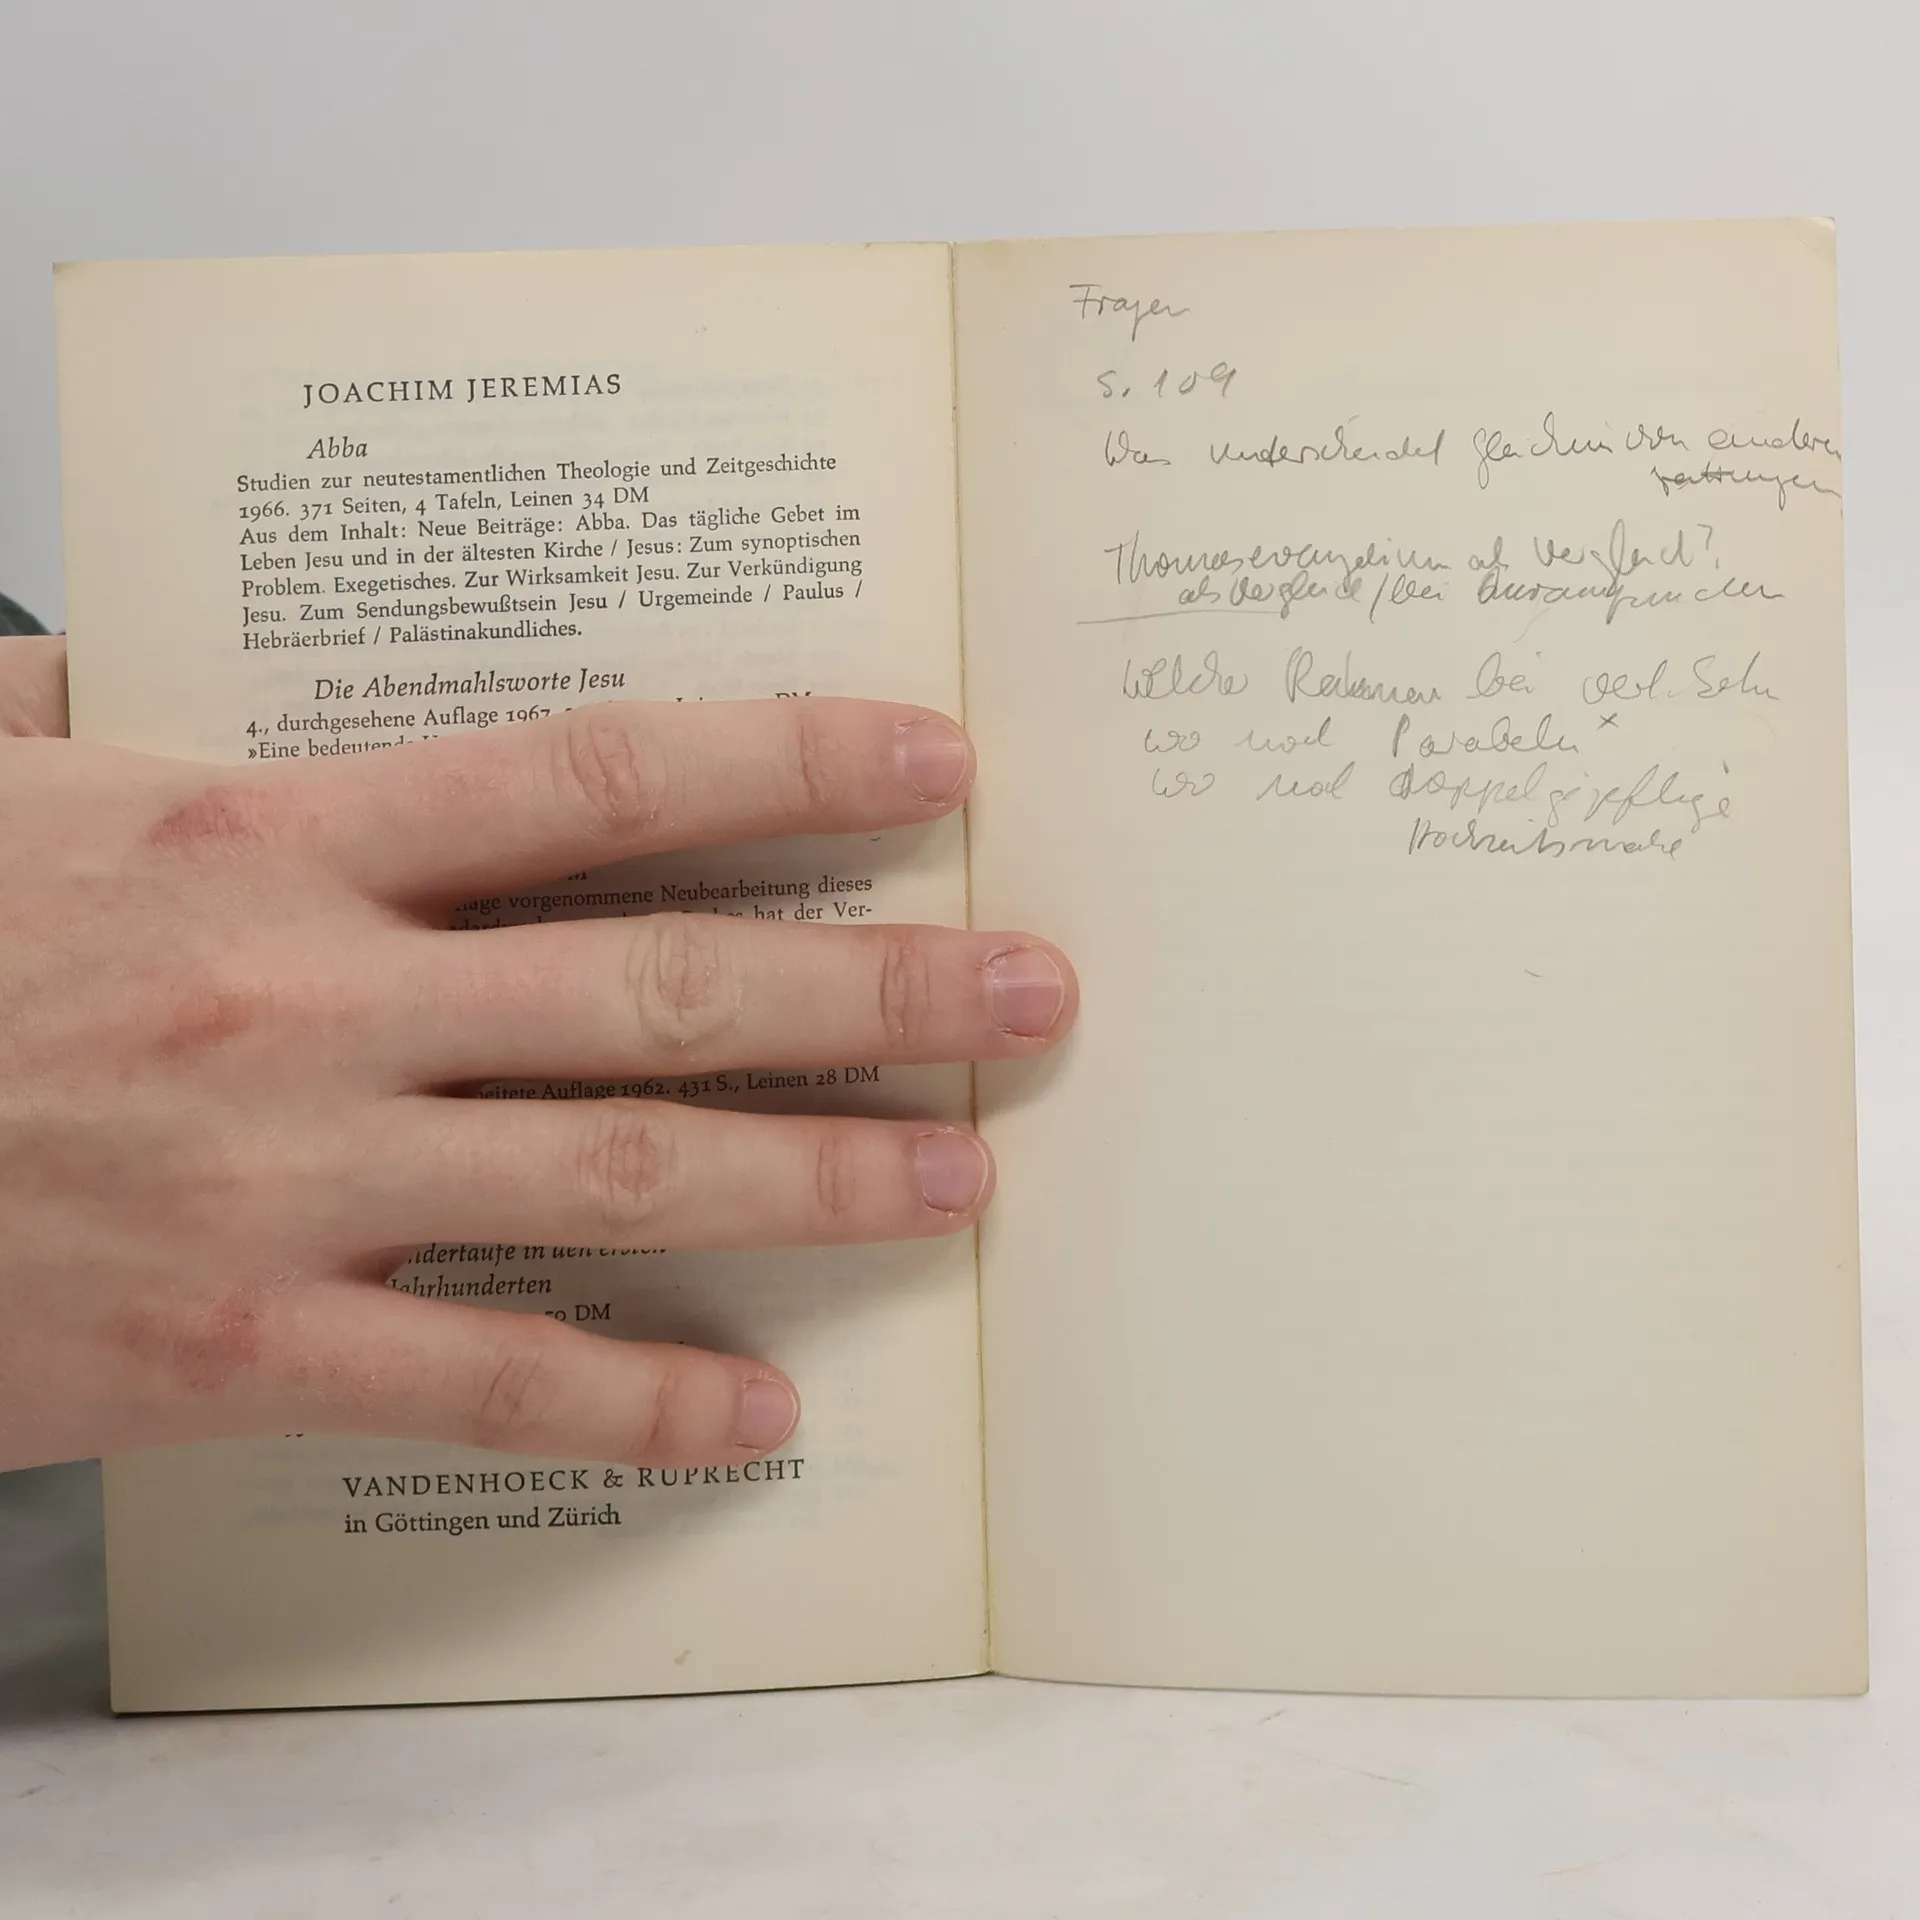 JOACHIM JEREMIAS
Abba
Studien zur neutestamentlichen Theologie und Zeitgeschichte
1966. 371 Seiten, 4 Tafeln, Leinen 34 DM
Aus dem Inhalt: Neue Beiträge: Abba. Das tägliche Gebet im
Leben Jesu und in der ältesten Kirche / Jesus: Zum synoptischen
Problem. Exegetisches. Zur Wirksamkeit Jesu. Zur Verkündigung
Jesu. Zum Sendungsbewußtsein Jesu / Urgemeinde / Paulus /
Hebräerbrief / Palästinakundliches.
Die Abendmahlsworte Jesu
4., durchgesehene Auflage 1967. DM
»Eine
vorgenommene Neubearbeitung dieses
hat der Ver-
Auflage 1962. 431 S., Leinen 28 DM
in den ersten
Jahrhunderten
DM
VANDENHOECK & RUPRECHT
in Göttingen und Zürich
Fragen
S. 109
Was unterscheidet von anderen
Thomasevangelium als Vergleich?
als Vergleich / bei
Welche Rahmen bei verl. Sohn
wo noch Parabeln x
wo noch doppelgipflige
Hochzeitsmahl